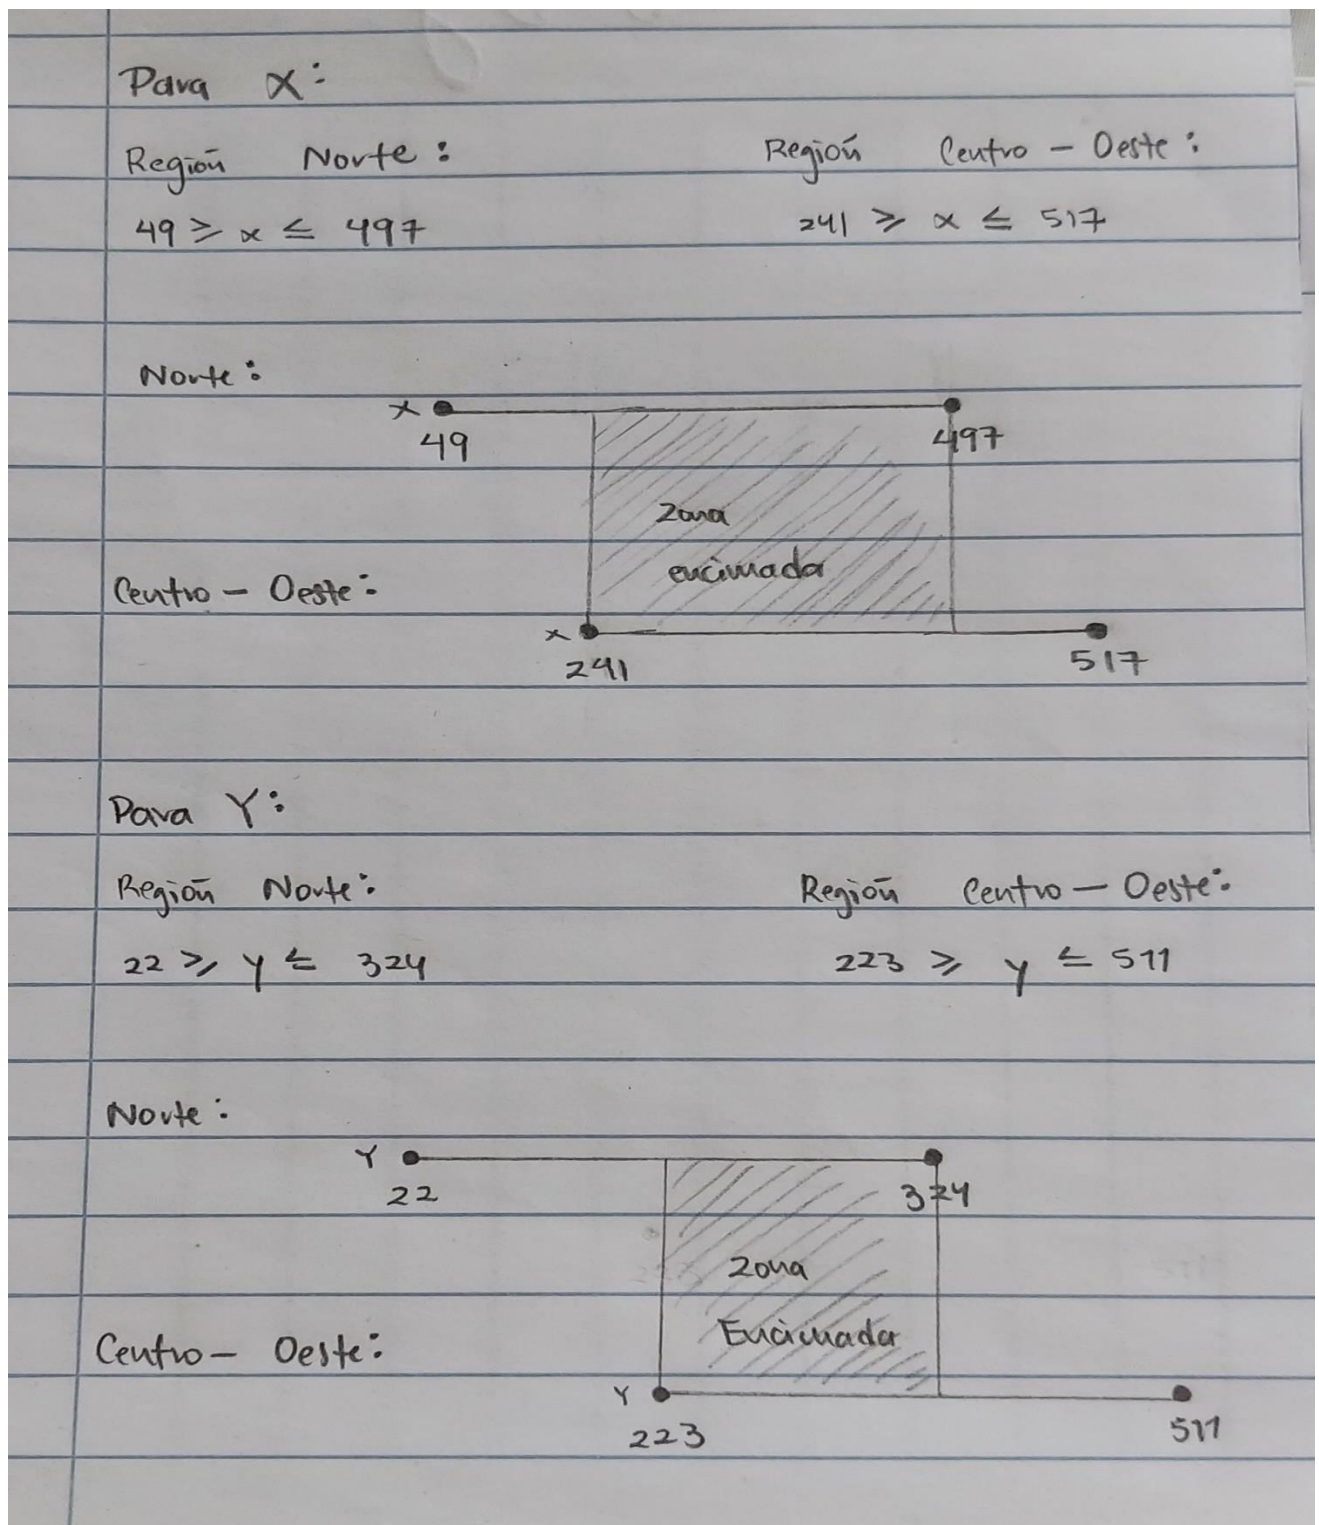 Para X:
Región Norte: Región Centro - Oeste:
49 ≥ x ≤ 497 241 ≥ x ≤ 517
Norte:
x
49 497
Zona
encimada
Centro - Oeste:
x
241 517
Para Y:
Región Norte: Región Centro - Oeste:
22 ≥ y ≤ 324 223 ≥ y ≤ 511
Norte:
Y
22 324
Zona
Encimada
Centro - Oeste:
Y
223 511